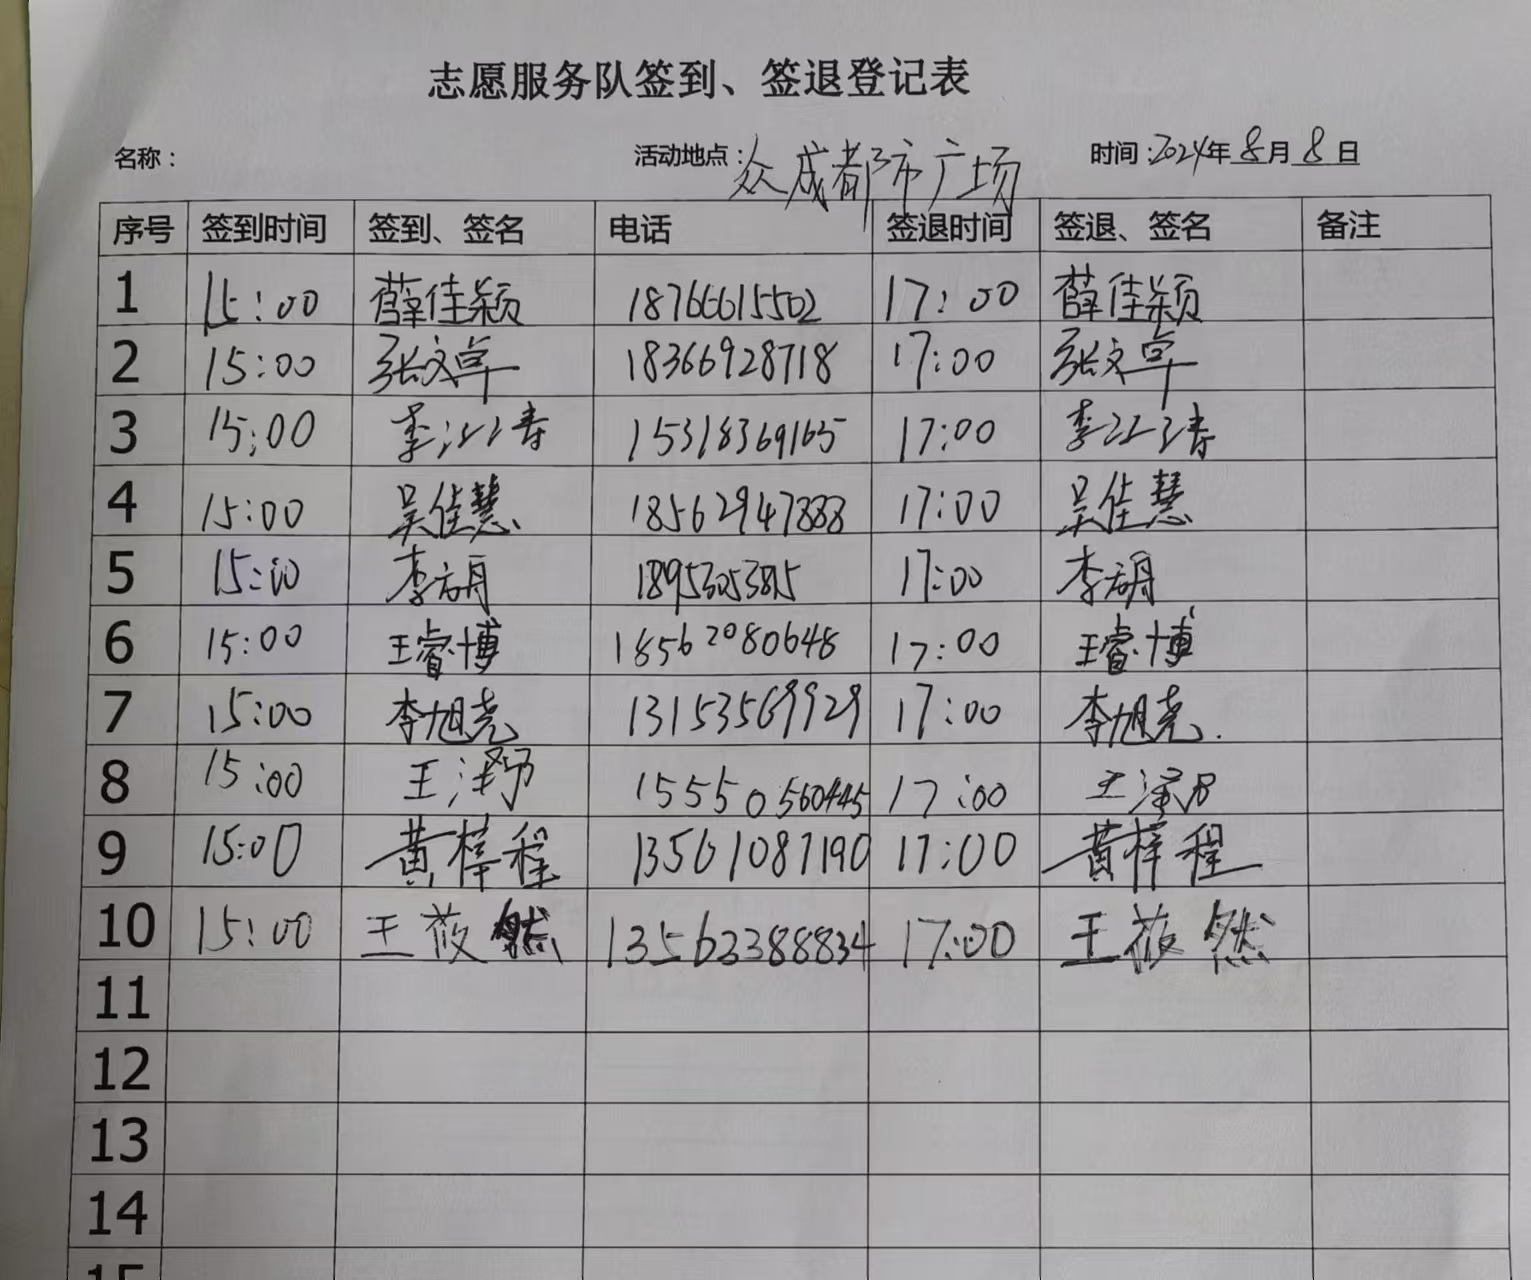 志愿服务队签到、签退登记表
名称： 活动地点：众成都市广场 时间：2024年8月8日
序号 签到时间 签到、签名 电话 签退时间 签退、签名 备注
1 15:00 薛佳颖 18766615502 17:00 薛佳颖
2 15:00 张文卓 18366928718 17:00 张文卓
3 15:00 李江涛 15318369165 17:00 李江涛
4 15:00 吴佳慧 18562947888 17:00 吴佳慧
5 15:00 李 18953053815 17:00 李
6 15:00 王睿博 18562080648 17:00 王睿博
7 15:00 李旭尧 13153569929 17:00 李旭尧
8 15:00 王泽予 15550560445 17:00 王泽予
9 15:00 黄梓程 13561087190 17:00 黄梓程
10 15:00 王莜然 13562388834 17:00 王莜然
11
12
13
14
15